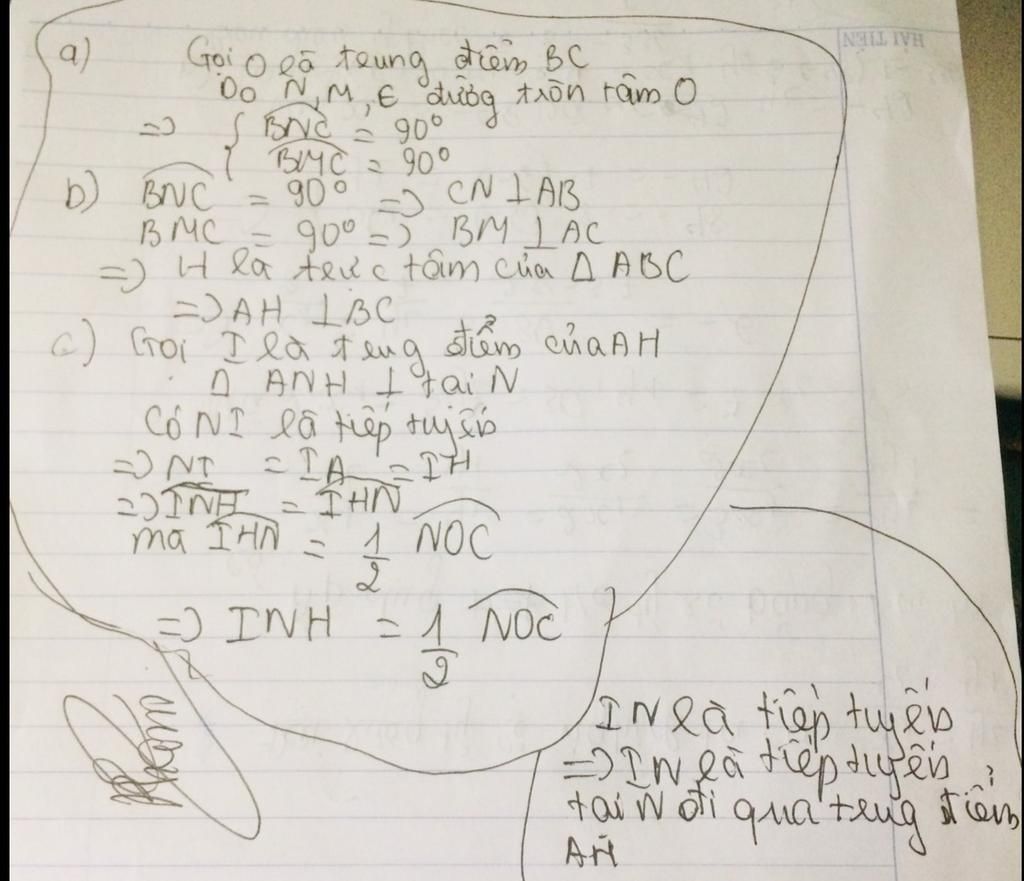 HẢI TIẾN
a) Gọi O là trung điểm BC
Do N, M, E đường tròn tâm O
=> { BNC = 90°
BMC = 90°
b) BNC = 90° => CN ⊥ AB
BMC = 90° => BM ⊥ AC
=> H là trực tâm của Δ ABC
=> AH ⊥ BC
c) Gọi I là trung điểm của AH
Δ ANH ⊥ tại N
Có NI là tiếp tuyến
=> NI = IA = IH
=> INH = IHN
mà IHN = 1/2 NOC
=> INH = 1/2 NOC
IN là tiếp tuyến
=> IN là tiếp tuyến
tại N đi qua trung điểm
AH